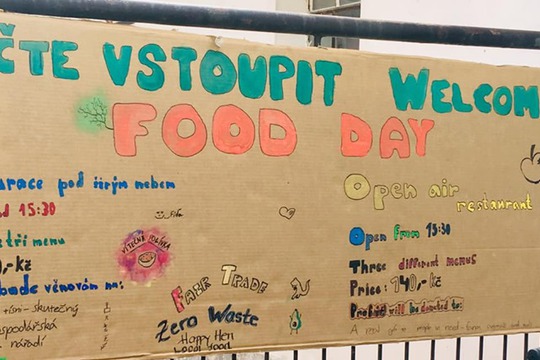 ČTE VSTOUPIT WELCOM
FOOD DAY
urace pod širým nebem
od 15:30
tři menu
0,-kč
bude věnován na:
skutečný
ospodářská
nářadí
Fair Trade
Zero Waste
Happy Hen
Local food
Open air
restaurant
Open from 15:30
Three different menus
Price: 140,-kč
Profit will be donated to:
A REAL